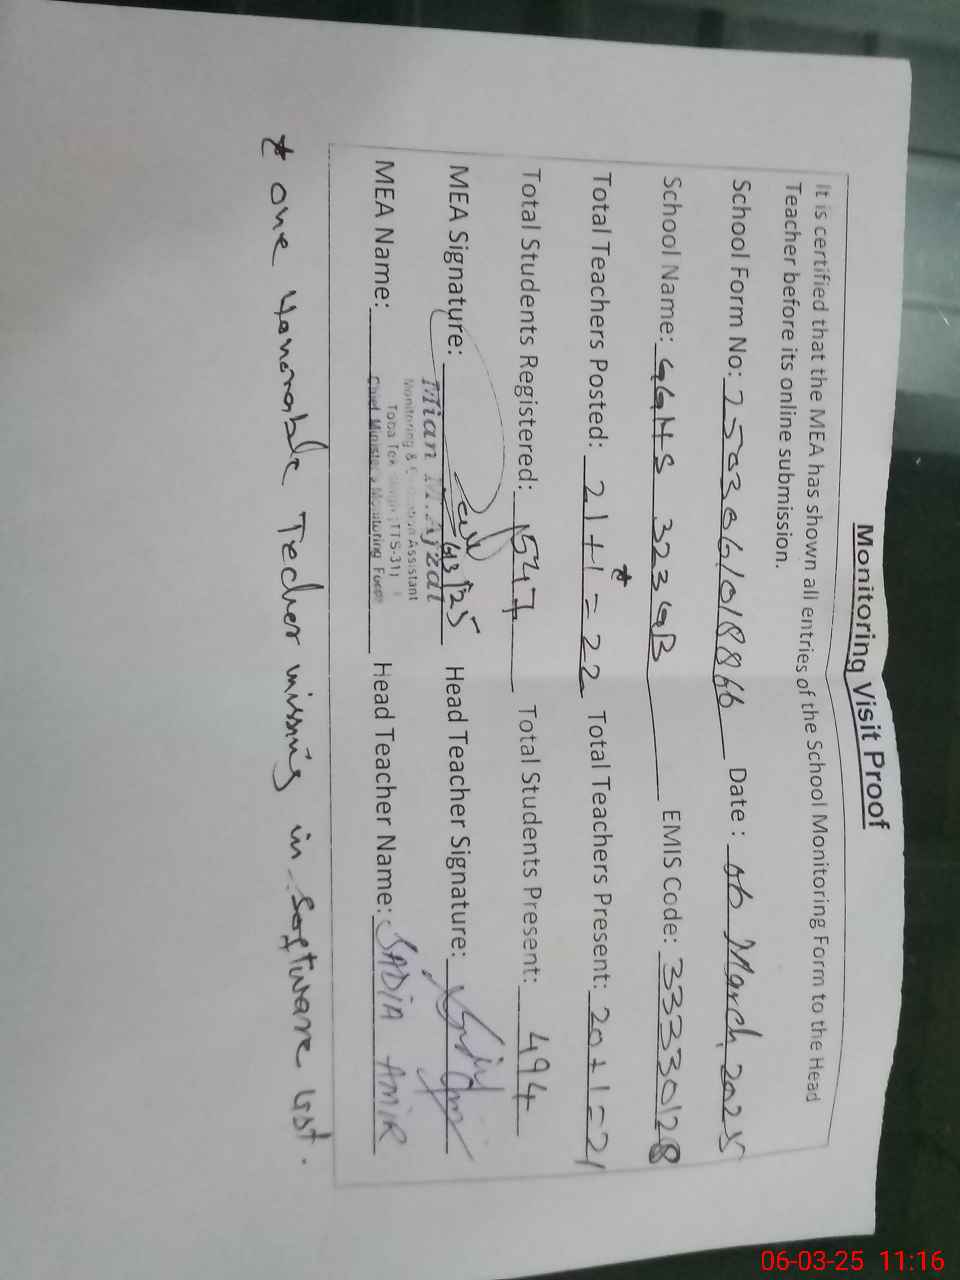 Monitoring Visit Proof
It is certified that the MEA has shown all entries of the School Monitoring Form to the Head
Teacher before its online submission.
School Form No: 2503061018866 Date : 06 March, 2025
School Name: GGHS 323 GB EMIS Code: 33330128
Total Teachers Posted: 21+1*=22 Total Teachers Present: 20+1=21
Total Students Registered: 547 Total Students Present: 494
MEA Signature: Head Teacher Signature:
Mian M. Afzal
Monitoring & Assistant
Toba Tek Singh (TTS-31)
Chief Minister's Monitoring Force
MEA Name: Head Teacher Name: SADIA AMIR
* one Honorable Techer missing in software list.
06-03-25 11:16